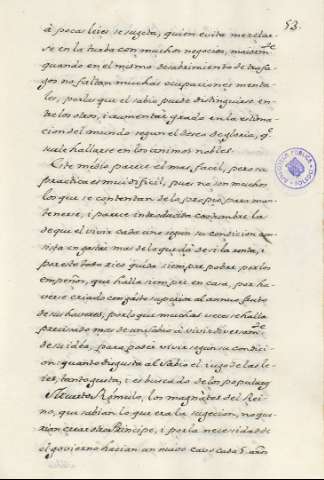 53.
à pocas leies se sugeta, quien evita mezclar-
se en la turba con muchos negocios, maiormte
quando en el mismo
gos no faltan muchas ocupaciones menta-
les, por las que el sabio puede distinguirse en-
tre los otros, i aumentar grado en la estima-
cion del mundo segun el deseo de gloria, q.
suele hallarse en los animos nobles.
Este medio parece el mas facil, pero su
practica es mui dificil, pues no son muchos
los que se contentan de lo propio para man-
tenerse, i parece introducida costumbre la
de que el vivir cada uno segun su condicion con-
sista en gastar mas de lo que dà de si la renta, i
por esto todo rico queda siempre pobre por los
empeños, que halla siempre en casa, por ha-
verse criado con gasto superior al annuo fruto
de sus haveres, por lo que muchas veces se halla
precisado mas de un sabio à vivir diversamte
de su idea, para poder vivir segun su condici-
on: quanto disgusta al Sabio el iugo de las le-
ies, tanto gusta, i es buscado de los populares
Muerto Romulo, los magnates del Rei-
no, que sabian lo que era la sugecion, no qui-
sieron crear otro Principe, i por la necesidad de
el govierno hacian un nuevo cada 5. años
BIBLIOTECA PUBLICA